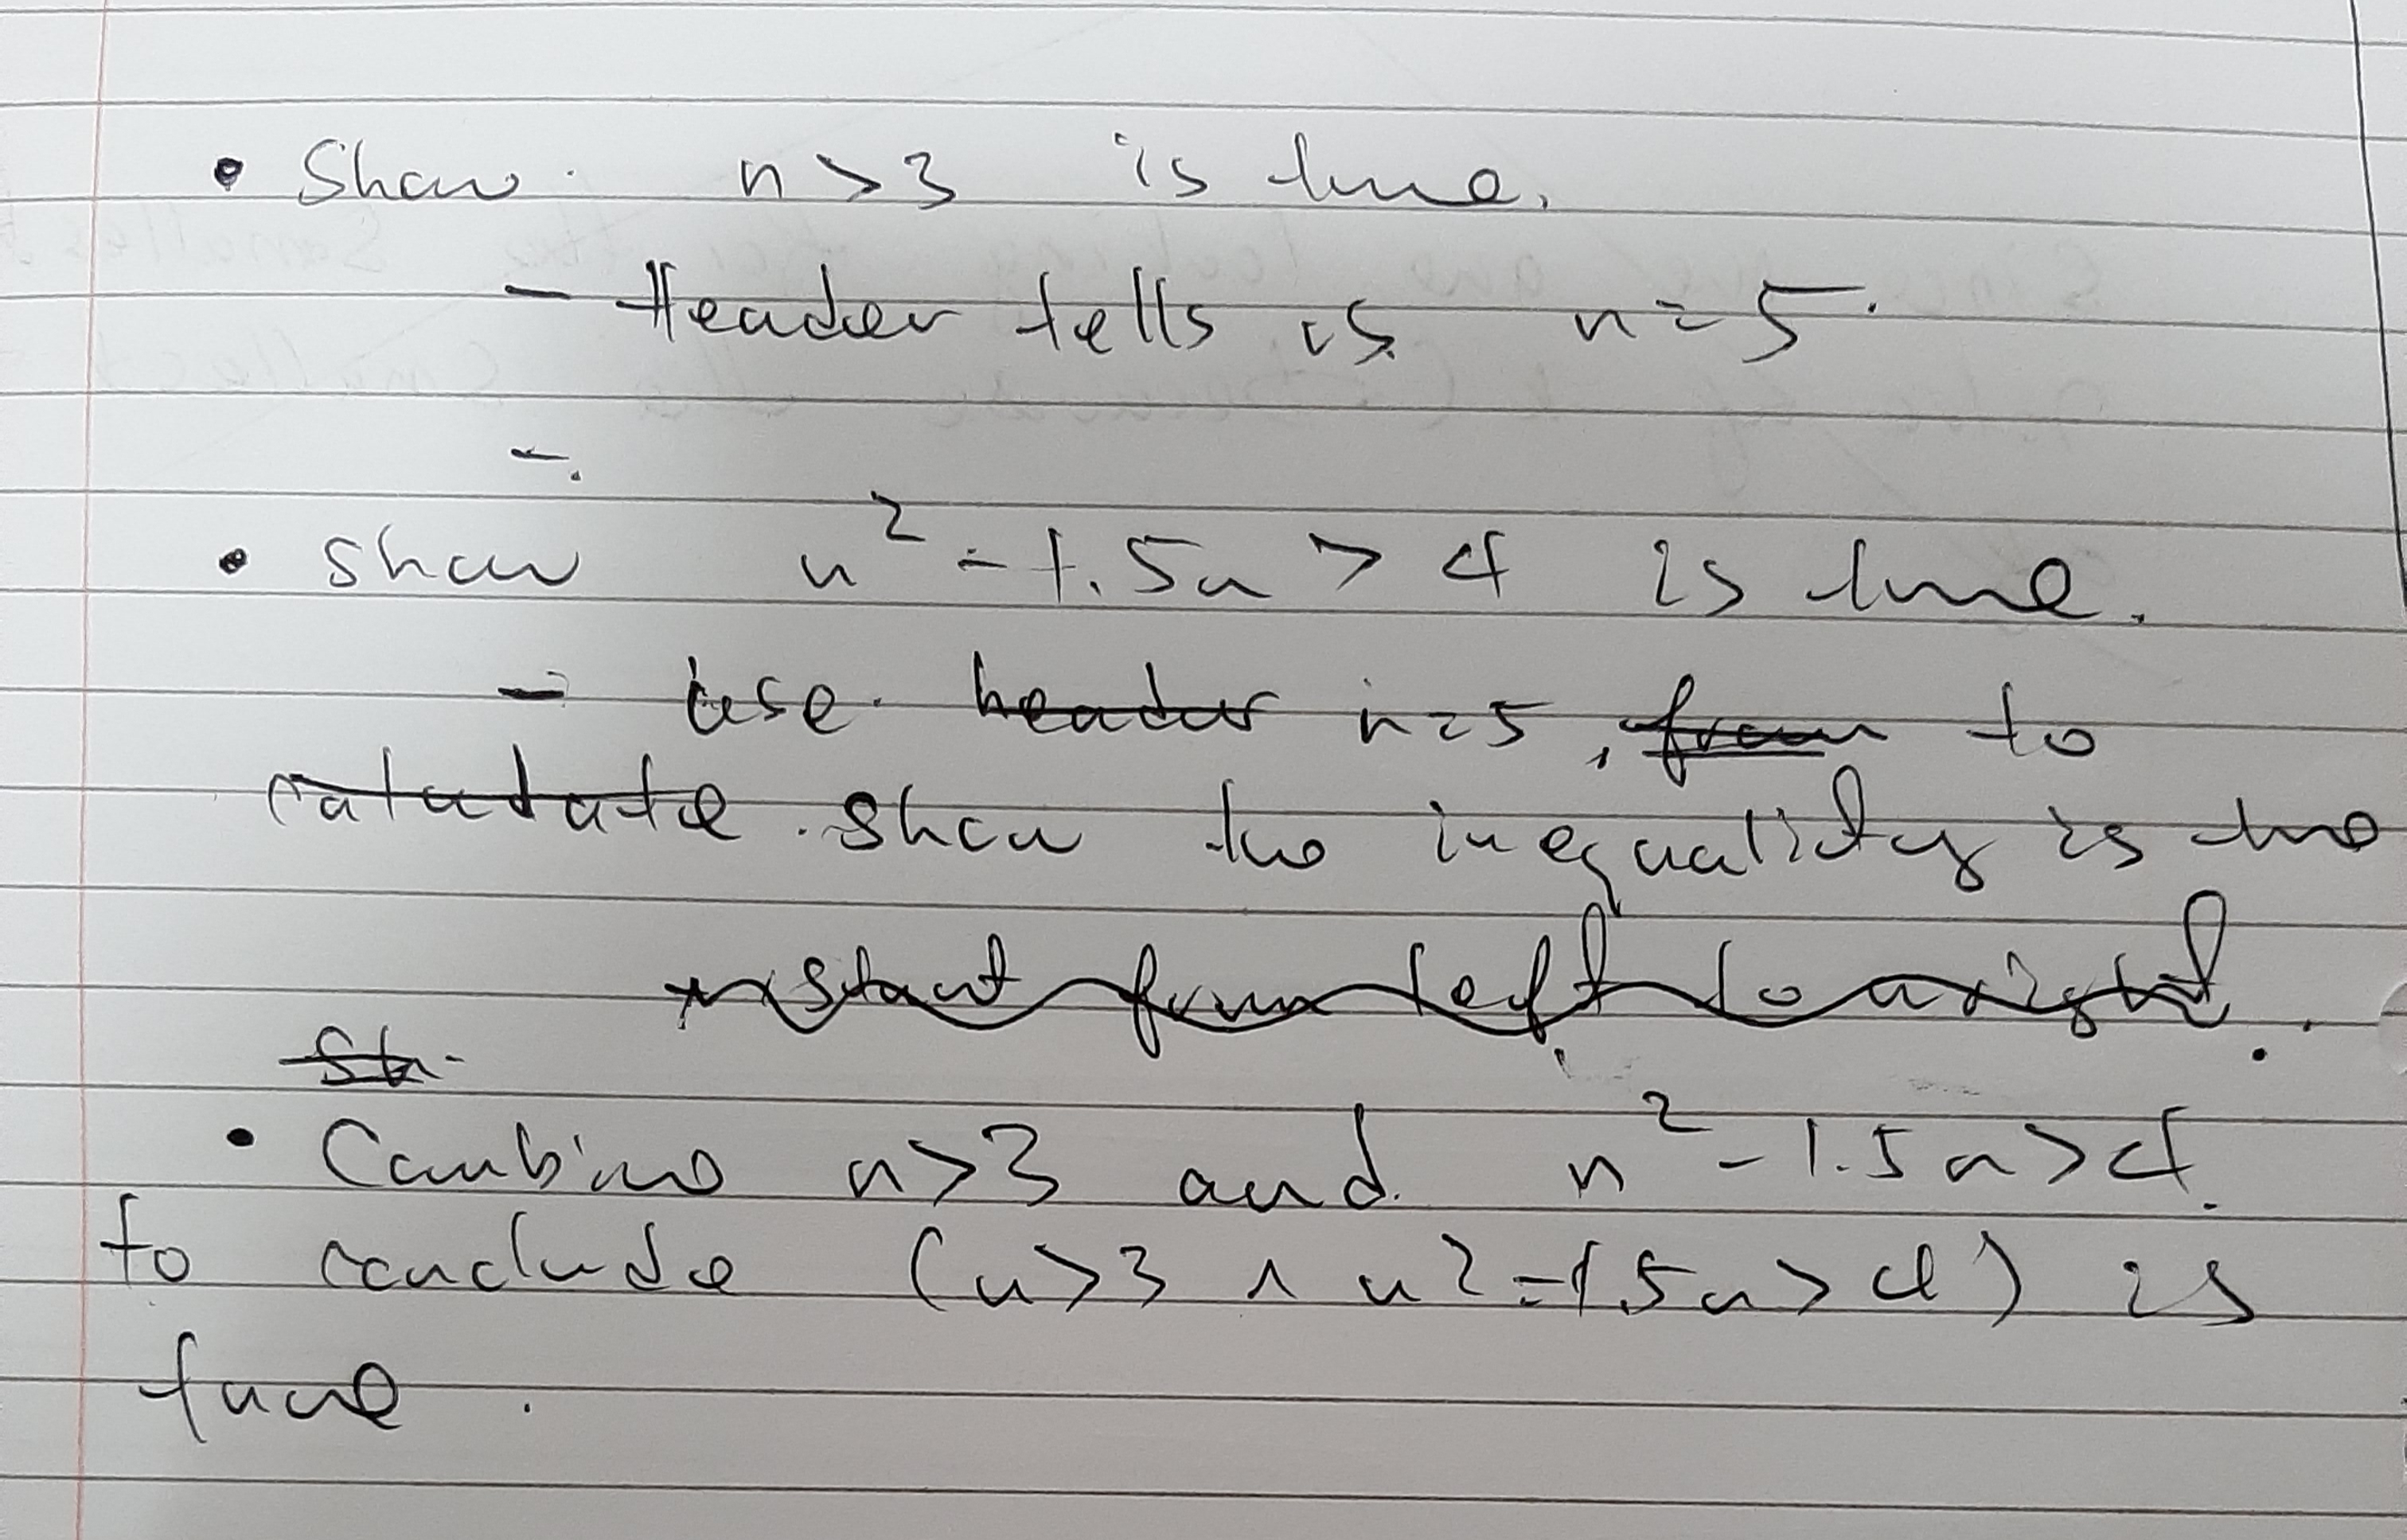 • Show n>3 is true.
- Header tells us n=5.
-.
• show n² - 1.5n > 4 is true.
- use header n=5, from to
calculate show the inequality is true
start from left to a right.
Sh
• Combine n>3 and n² - 1.5n>4.
to conclude (n>3 ∧ n² - 1.5n > 4) is
true.